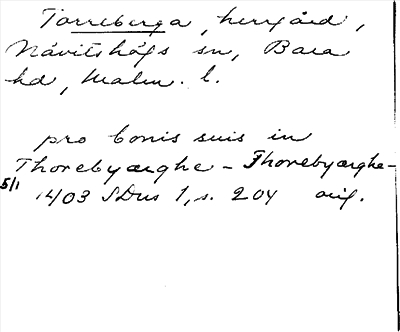 Torreberga, herrgård,
Nävitshögs sn, Bara
hd, Malm. l.
pro bonis suis in
Thorebyærghe - Thorebyærghe -
5/1 1403 SDns 1, s. 204 orig.